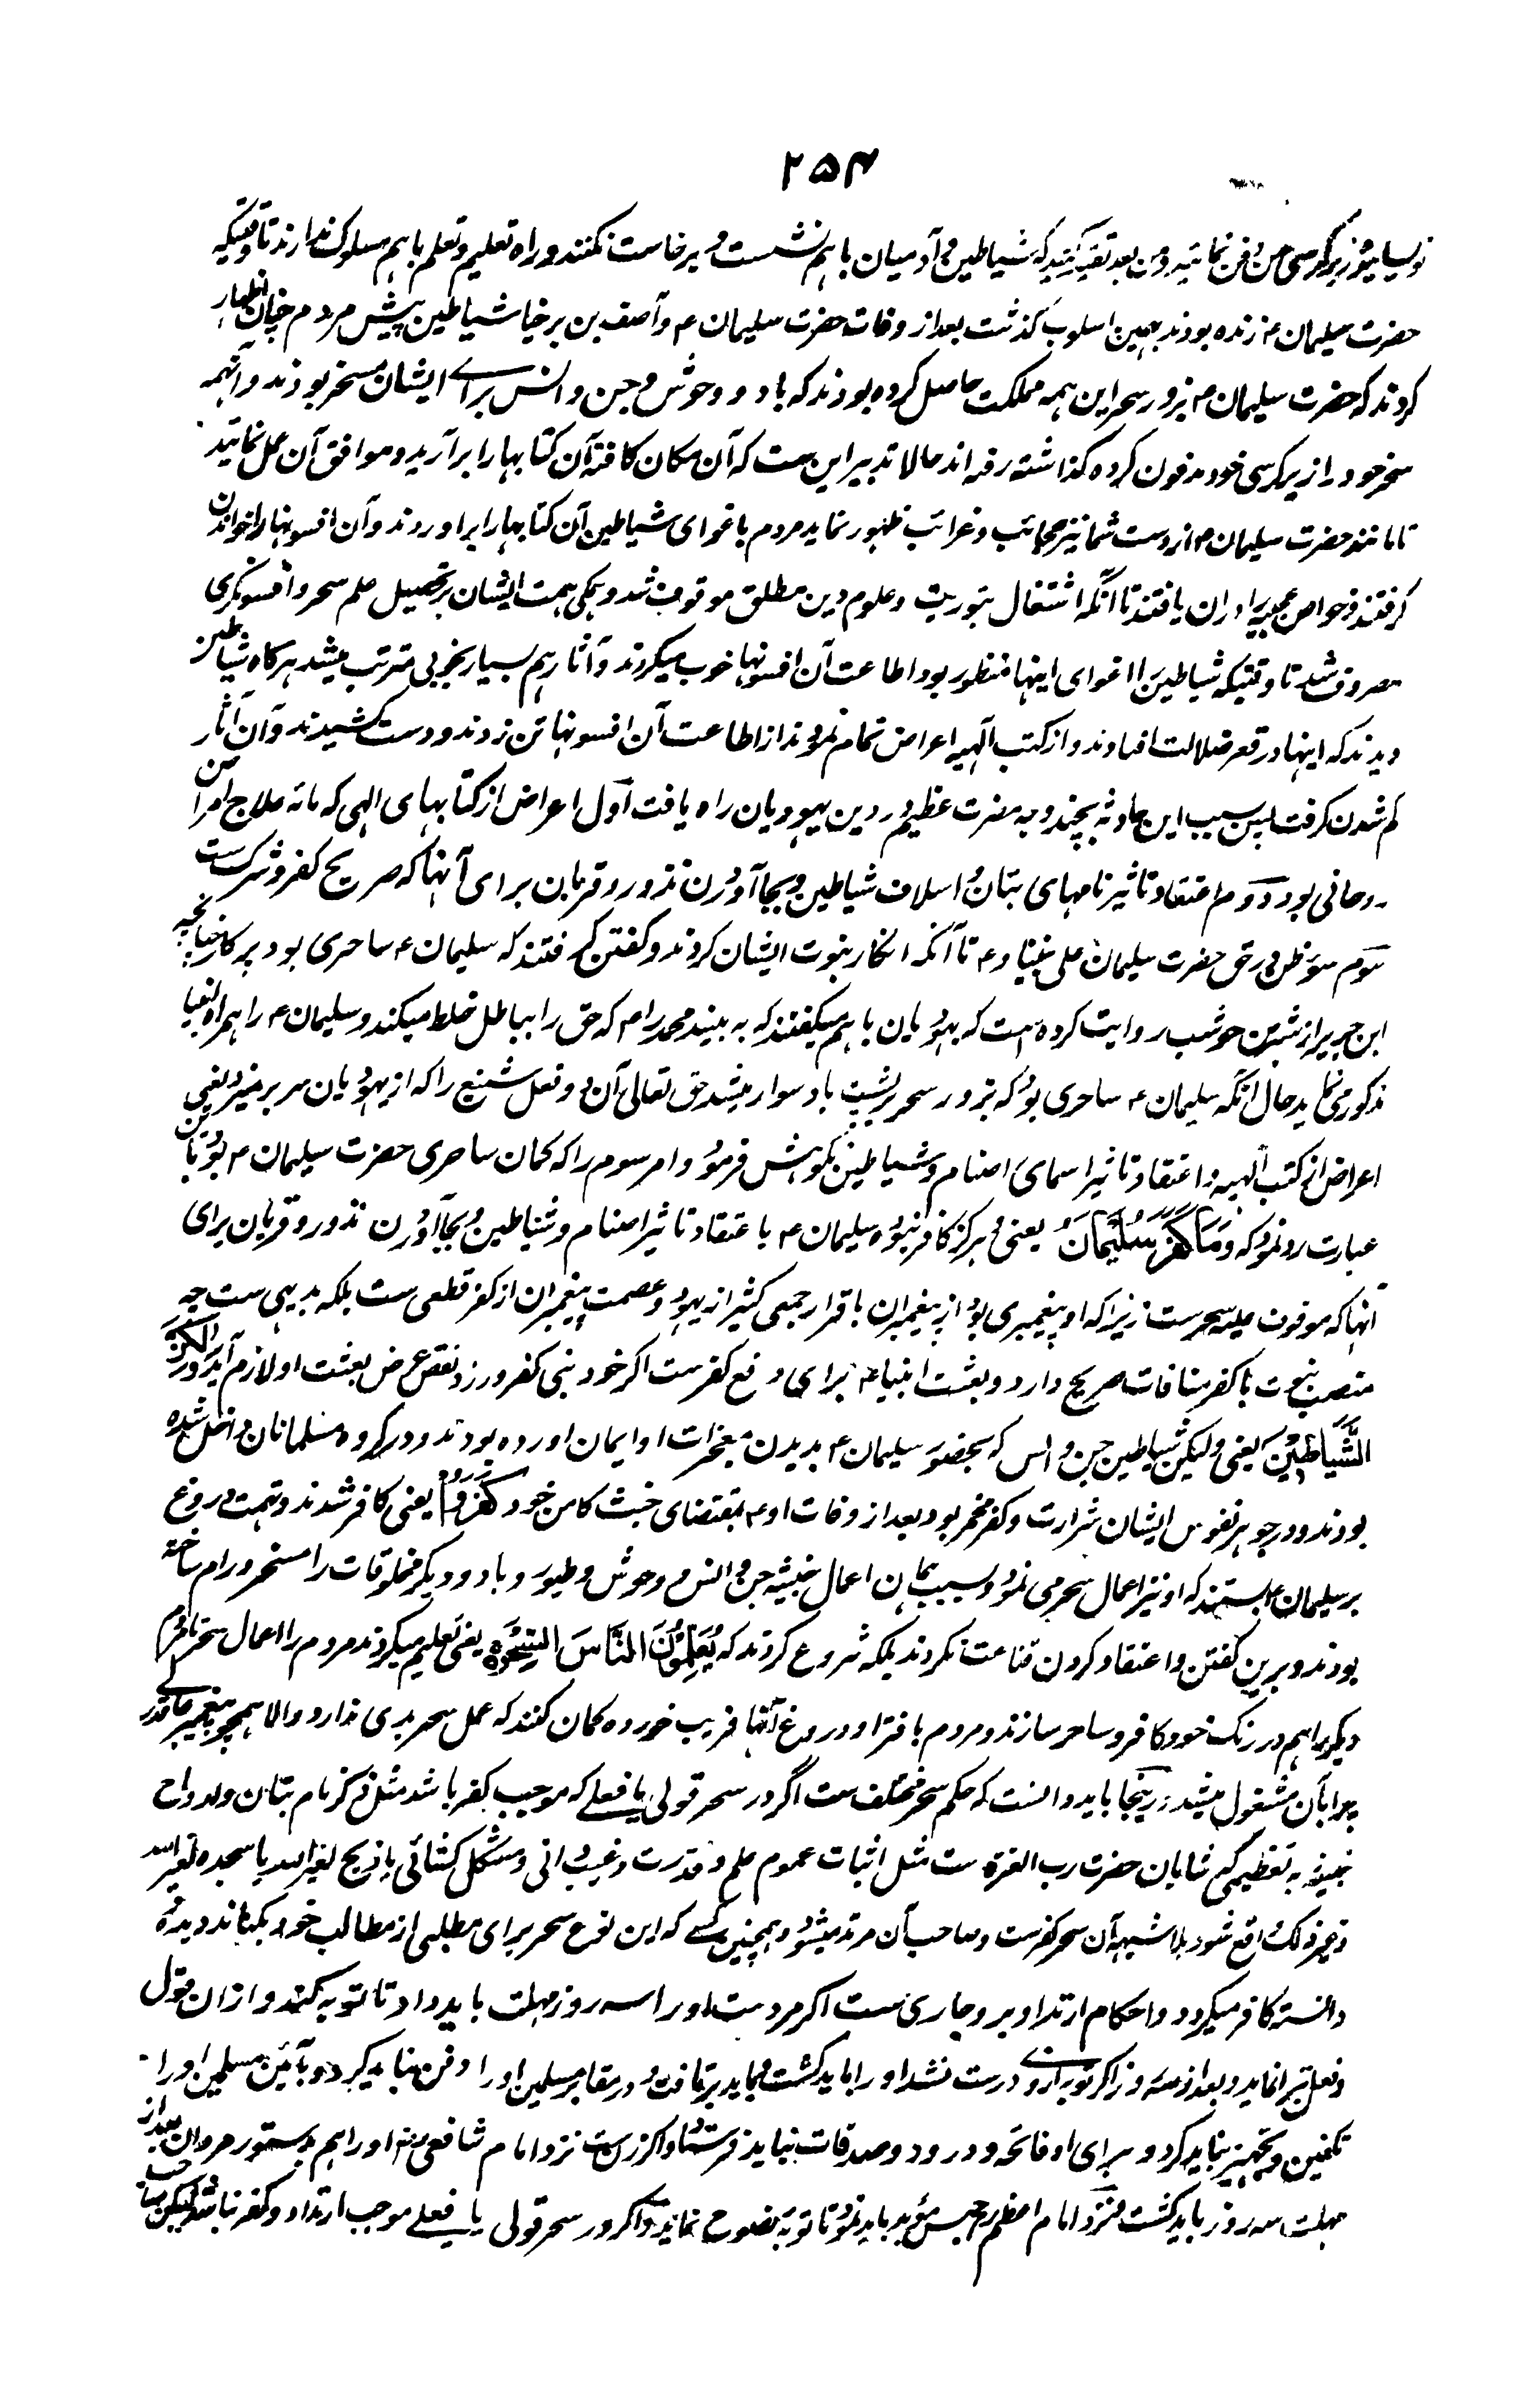 ۲۵۴
نویسانید و زیر کرسی من دفن نمائید و من بعد تقید کنید که شیاطین و آدمیان باهم نشست و برخاست نکنند و راه تعلیم و تعلم باهم مسلوک ندارند تا وقتیکه
حضرت سلیمان ع زنده بودند بهمین اسلوب گذشت بعد از وفات حضرت سلیمان ع و آصف بن برخیا شیاطین پیش مردم چنان اظهار
کردند که حضرت سلیمان ع بزور سحر این همه مملکت حاصل کرده بودند که باد و وحوش و جن و انس برای ایشان مسخر بودند و آنهمه
سحر خود را زیر کرسی خود مدفون کرده گذاشته رفته اند حالا تدبیر این ست که آن مکان کافته آن کتابها را برآرید و موافق آن عمل نمائید
تا مانند حضرت سلیمان ع از دست شما نیز عجائب و غرائب ظهور نماید مردم باغوای شیاطین آن کتابها را براوردند و آن افسونها را خواندن
گرفتند و خواص عجیبه را دران یافتند تا آنکه اشتغال بتوریت و علوم دین مطلق موقوف شد و بکی همت ایشان بر تحصیل علم سحر و افسونگری
مصروف شد تا وقتیکه شیاطین را اغوای اینها منظور بود اطاعت آن افسونها خوب میکردند و آثار هم بسیار بخوبی مترتب میشد هرگاه شیاطین
دیدند که اینها در قعر ضلالت افتادند و از کتب الهیه اعراض تمام نمودند از اطاعت آن افسونها تن زدند و دست کشیدند و آن آثار
کم شدن گرفت پس بسبب این حادثه بچند وجه مضرت عظیم در دین یهودیان راه یافت اول اعراض از کتابهای الهی که مانه علاج امراض
روحانی بود دوم اعتقاد تاثیر نامهای بتان و اسلاف شیاطین و بجا آوردن نذور و قربان برای آنها که صریح کفر و شرک ست
سوم سوء ظن در حق حضرت سلیمان علی نبینا و ع تا آنکه انکار نبوت ایشان کردند و گفتن گرفتند که سلیمان ع ساحری بود پرکار چنانچه
ابن جریر از شهر بن حوشب روایت کرده است که یهودیان باهم میگفتند که به بینید محمد را م که حق را بباطل خلط میکند و سلیمان ع را همراه انبیا
مذکور می نماید حال آنکه سلیمان ع ساحری بود که بزور سحر بر پشت باد سوار میشد حق تعالی آن دو فعل شنیع را که از یهودیان سر بر میزد یعنی
اعراض از کتب الهیه و اعتقاد تاثیر اسمای اصنام و شیاطین نکوهش فرمود و امر سوم را که گمان ساحری حضرت سلیمان ع بود باین
عبارت رد نمود که وَمَا كَفَرَ سُلَيْمَانُ یعنی و هرگز کافر نبود سلیمان ع باعتقاد تاثیر اصنام و شیاطین و بجا آوردن نذور و قربان برای
آنها که موقوف علیه سحر ست زیرا که او پیغمبری بود از پیغمبران باقرار جمعی کثیر از یهود و عصمت پیغمبران از کفر قطعی ست بلکه بدیهی ست چه
منصب نبوت با کفر منافات صریح دارد و بعثت انبیاء ع برای دفع کفر ست اگر خود نبی کفر ورزد نقض غرض بعثت او لازم آید وَلٰكِنَّ
الشَّيَاطِيْنَ یعنی ولیکن شیاطین جن و انس که بحضور سلیمان ع بدیدن معجزات او ایمان اورده بودند و در گروه مسلمانان داخل شده
بودند و در جوهر نفوس ایشان شرارت و کفر مخمر بود بعد از وفات او ع بمقتضای خبث کامن خود كَفَرُوْا یعنی کافر شدند و تهمت دروغ
بر سلیمان ع بستند که او نیز اعمال سحر می نمود و بسبب همان اعمال خبیثه جن و انس و وحوش و طیور و باد و دیگر مخلوقات را مسخر و رام ساخته
بودند و برین گفتن و اعتقاد کردن قناعت نکردند بلکه شروع کردند که يُعَلِّمُوْنَ النَّاسَ السِّحْرَ یعنی تعلیم میکردند مردم را اعمال سحر تا مردم
دیگر را هم در رنگ خود کافر و ساحر سازند و مردم بافترا و دروغ آنها فریب خورده گمان کنند که عمل سحر بدی ندارد والا همچو پیغمبر عالی قدر
چرا بآن مشغول میشد درینجا باید دانست که حکم سحر مختلف ست اگر در سحر قولی یا فعلی که موجب کفر باشد مثل ذکر نام بتان و ارواح
خبیثه به تعظیمی که شایان حضرت رب العزة ست مثل اثبات عموم علم و قدرت و غیب دانی و مشکل کشائی یا ذبح لغیر الله یا سجده لغیر الله
و غیر ذلک واقع شود بلاشبهه آن سحر کفر ست و صاحب آن مرتد میشود و همچنین کسی که این نوع سحر برای مطلبی از مطالب خود بکناند دیده و
دانسته کافر میگردد و احکام ارتداد برو جاری ست اگر مرد ست او را سه روز مهلت باید داد تا توبه کند و ازان قول
و فعل تبرا نماید و بعد از سه روز اگر توبه ازوی درست نشد او را باید کشت و نباید برتافت و در مقابر مسلمین او را دفن نباید کرد و بآئین مسلمین او را
تکفین و تجهیز نباید کرد و برای او فاتحه و درود و صدقات نباید فرستاد و اگر زن ست نزد امام شافعی رح او را هم بدستور مردان بعد از
مهلت سه روز باید کشت و نزد امام اعظم رح حبس مؤبد باید نمود تا توبه نصوح نماید و اگر در سحر قولی یا فعلی موجب ارتداد و کفر نباشد لیکن صاحب